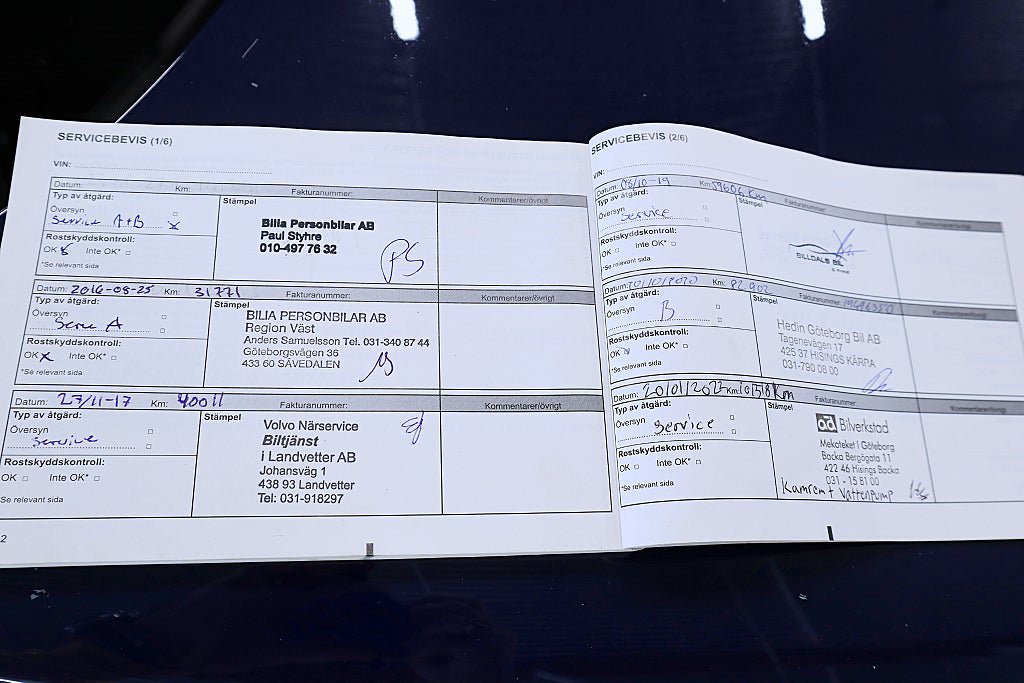 SERVICEBEVIS (1/6)
VIN:
Datum: Km: Fakturanummer: Kommentarer/övrigt
Typ av åtgärd:
Översyn
Service A+B x
Rostskyddskontroll:
OK x Inte OK*
*Se relevant sida
Stämpel
Bilia Personbilar AB
Paul Styhre
010-497 76 32
PS
Datum: 2016-08-25 Km: 31771 Fakturanummer: Kommentarer/övrigt
Typ av åtgärd:
Översyn
Serv A
Rostskyddskontroll:
OK x Inte OK*
*Se relevant sida
Stämpel
BILIA PERSONBILAR AB
Region Väst
Anders Samuelsson Tel. 031-340 87 44
Göteborgsvägen 36
433 60 SÄVEDALEN
Datum: 27/11-17 Km: 40011 Fakturanummer: Kommentarer/övrigt
Typ av åtgärd:
Översyn
Service
Rostskyddskontroll:
OK Inte OK*
*Se relevant sida
Stämpel
Volvo Närservice
Biltjänst
i Landvetter AB
Johansväg 1
438 93 Landvetter
Tel: 031-918297
2
SERVICEBEVIS (2/6)
VIN:
Datum: 08/10-19 Km: 59606 Km Fakturanummer: Kommentarer/övrigt
Typ av åtgärd:
Översyn
Service
Rostskyddskontroll:
OK Inte OK*
*Se relevant sida
Stämpel
BILLDALS BIL
Datum: Km: Fakturanummer: Kommentarer/övrigt
Typ av åtgärd:
Översyn
B
Rostskyddskontroll:
OK Inte OK*
*Se relevant sida
Stämpel
Hedin Göteborg Bil AB
Tagenevägen 17
425 37 HISINGS KÄRRA
031-790 08 00
Datum: 20/01/2022 Km: Km Fakturanummer: Kommentarer/övrigt
Typ av åtgärd:
Översyn
Service
Rostskyddskontroll:
OK Inte OK*
*Se relevant sida
Stämpel
ad Bilverkstad
Mekoteket i Göteborg
Backa Bergögata 11
422 46 Hisings Backa
031 - 15 81 00
Kamrem + Vattenpump